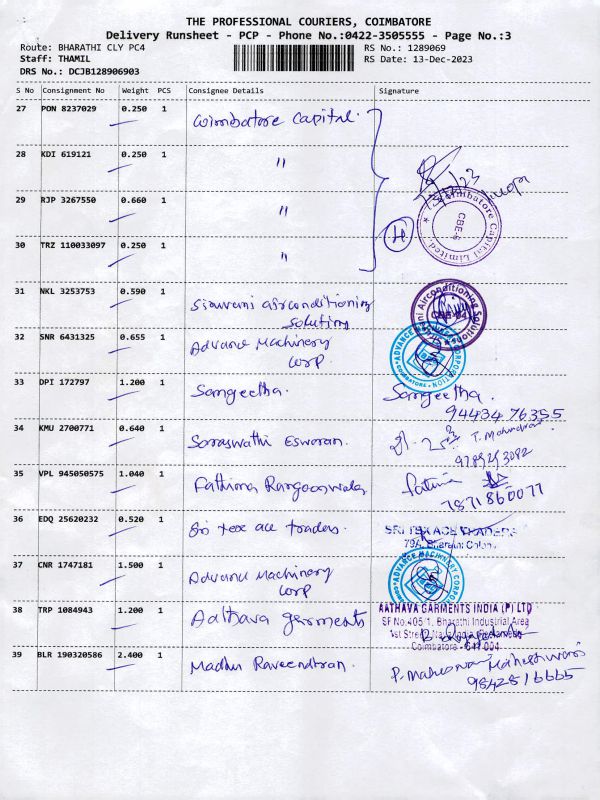 THE PROFESSIONAL COURIERS, COIMBATORE
Delivery Runsheet - PCP - Phone No.:0422-3505555 - Page No.:3
Route: BHARATHI CLY PC4
RS No.: 1289069
Staff: THAMIL
RS Date: 13-Dec-2023
DRS No.: DCJB128906903
S No Consignment No Weight PCS Consignee Details Signature
27 PON 8237029 0.250 1 Coimbatore Capital.
28 KDI 619121 0.250 1 "
29 RJP 3267550 0.660 1 "
Coimbatore Capital Limited. CBE-6
30 TRZ 110033097 0.250 1 "
31 NKL 3253753 0.590 1 Siruvani airconditioning
Solution
Airconditioning Solutions
32 SNR 6431325 0.655 1 Advance Machinery
Corp.
ADVANCE MACHINERY CORPORATION COIMBATORE
33 DPI 172797 1.200 1 Sangeetha. Sangeetha.
94434 76355
34 KMU 2700771 0.640 1 Saraswathi Eswaran.
9789293092
35 VPL 945050575 1.040 1 Fathima Rangoonwala Fatima
7871860077
36 EDQ 25620232 0.520 1 Sri tex ace traders. SRI TEX ACE TRADERS
79A, Bharathi Colony
37 CNR 1747181 1.500 1 Advance Machinery
Corp
ADVANCE MACHINERY CORPORATION
38 TRP 1084943 1.200 1 Aathava garments
AATHAVA GARMENTS INDIA (P) LTD
SF No.405/1, Bharathi Industrial Area
1st Street,
Coimbatore - 641 004.
39 BLR 190320586 2.400 1 Madhu Raveendran. P. Maheswari Maheshwari
9842816665